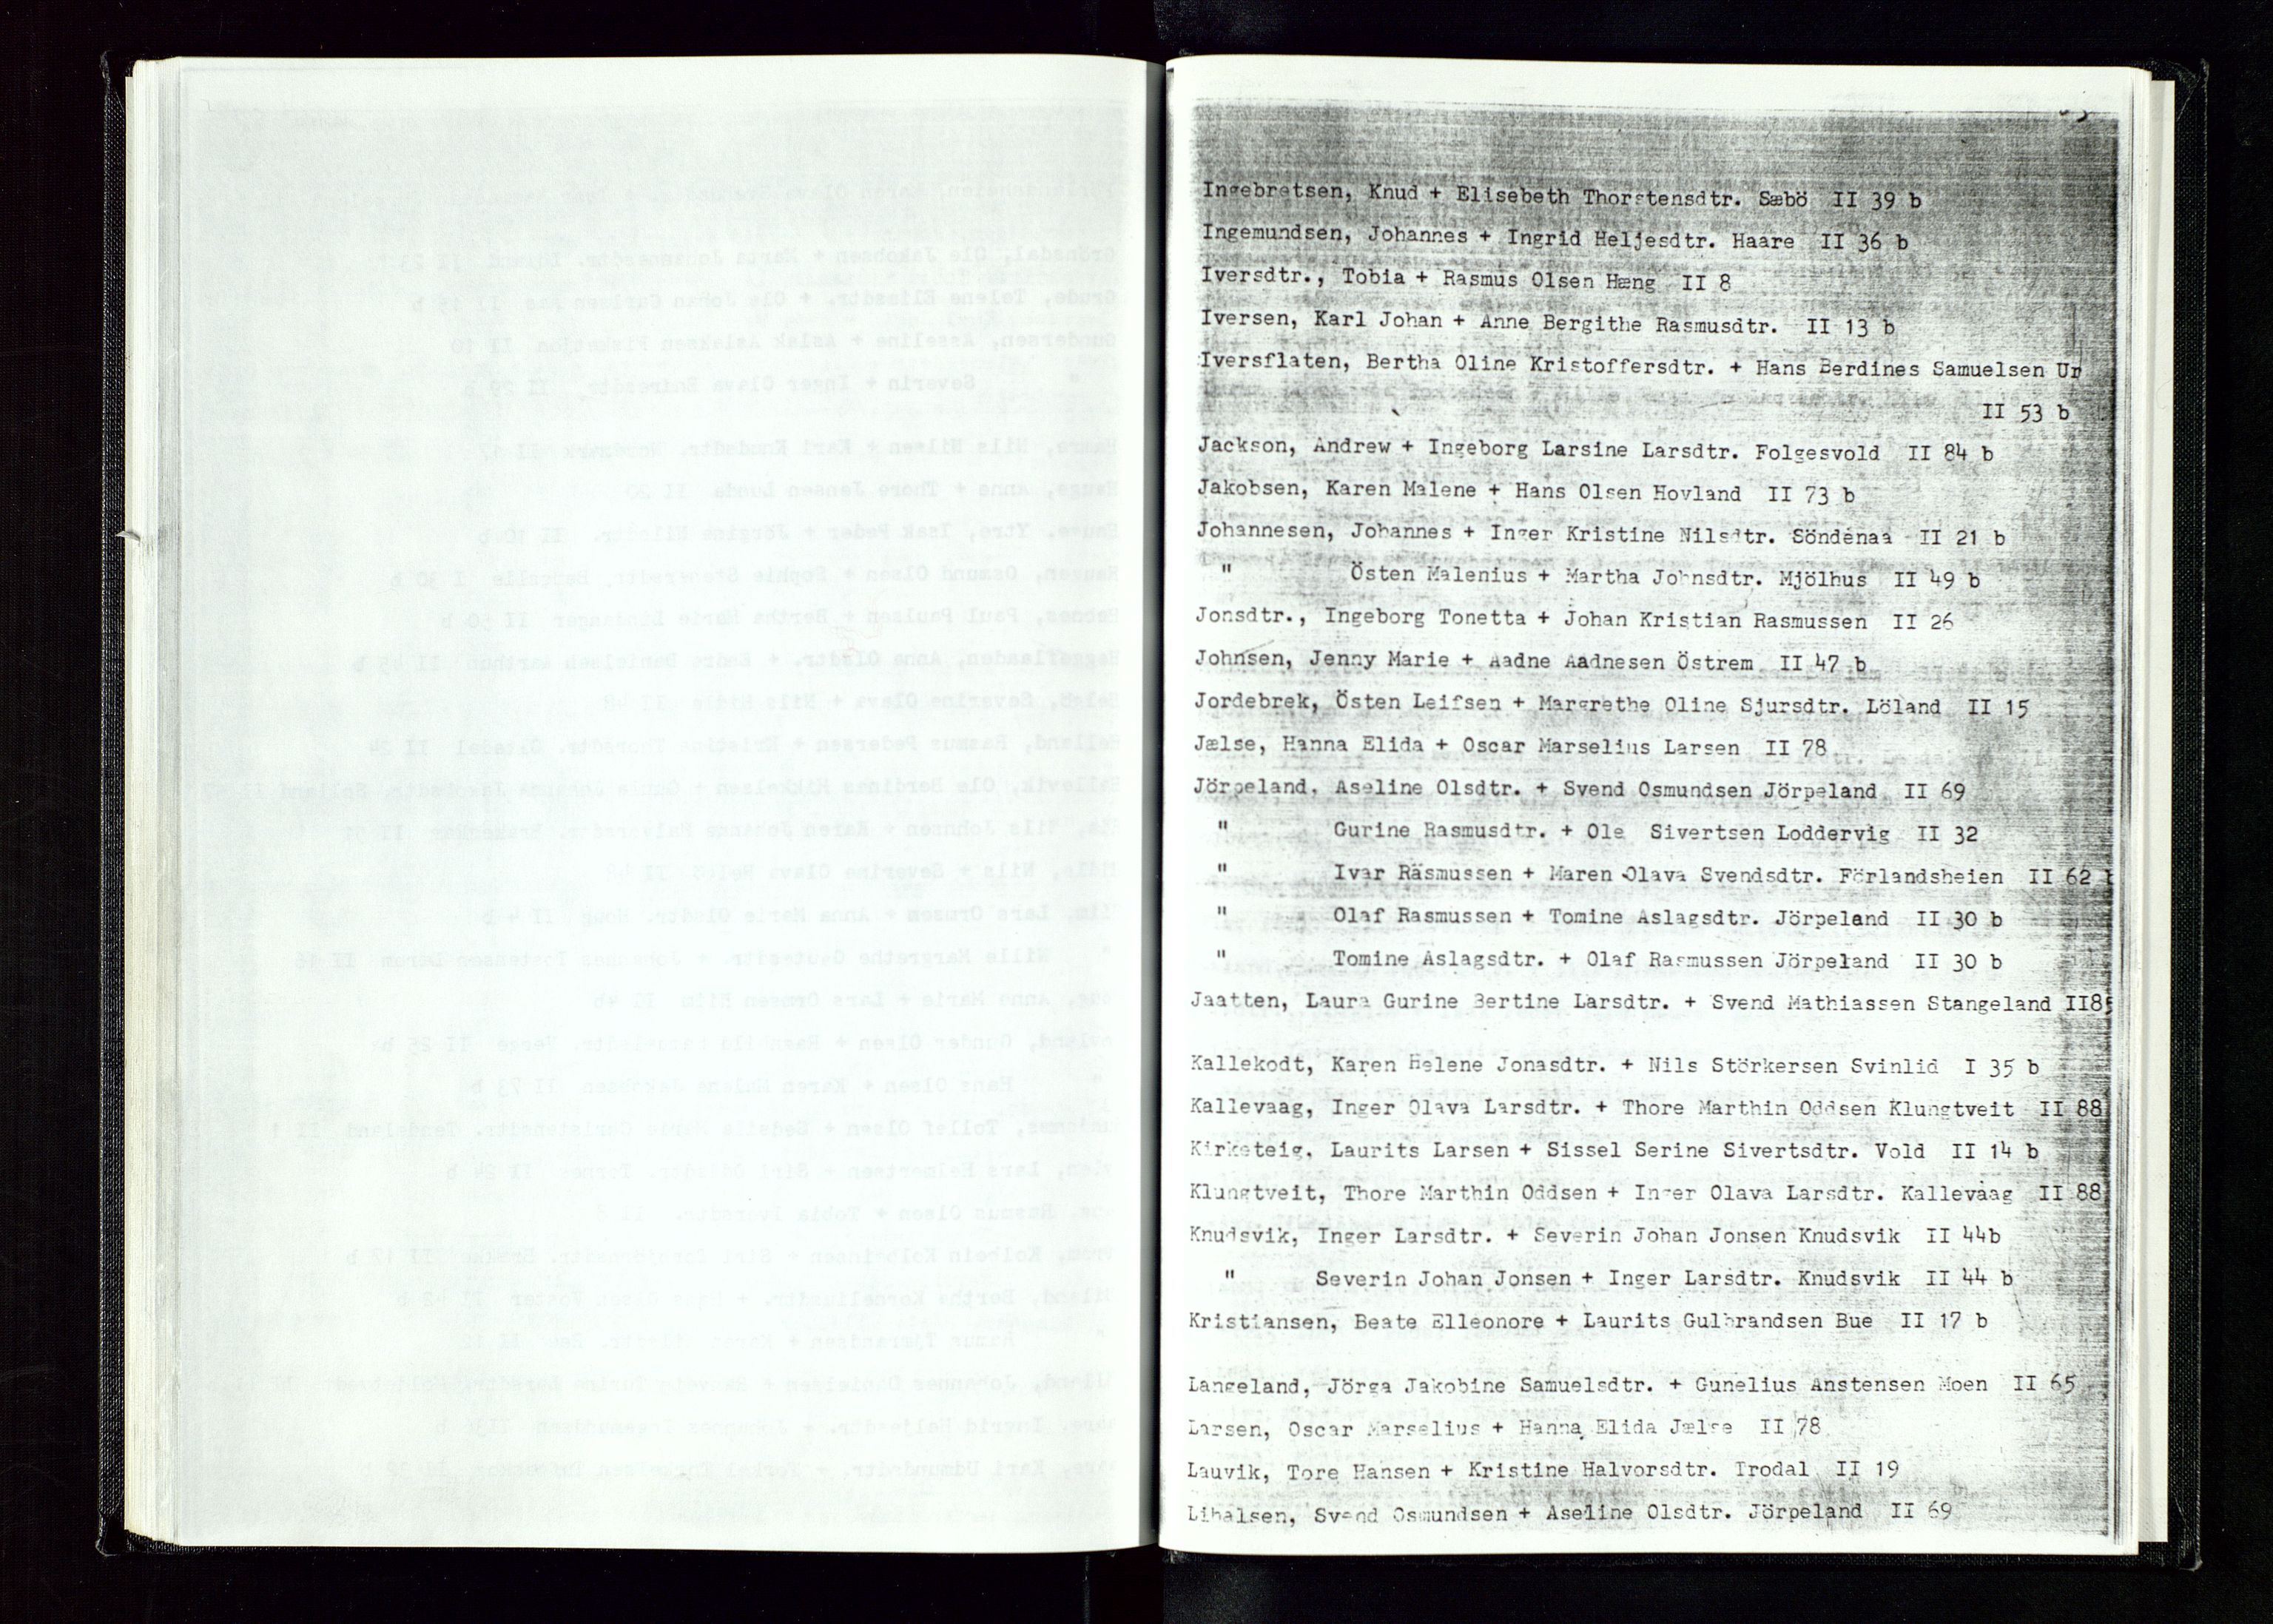 Ingebretsen, Knud + Elisebeth Thorstensdtr. Sæbö II 39 b
Ingemundsen, Johannes + Ingrid Heljesdtr. Haare II 36 b
Iversdtr., Tobia + Rasmus Olsen Hæng II 8
Iversen, Karl Johan + Anne Bergithe Rasmusdtr. II 13 b
Iversflaten, Bertha Oline Kristoffersdtr. + Hans Berdines Samuelsen Ur
II 53 b
Jackson, Andrew + Ingeborg Larsine Larsdtr. Folgesvold II 84 b
Jakobsen, Karen Malene + Hans Olsen Hovland II 73 b
Johannesen, Johannes + Inger Kristine Nilsdtr. Söndenaa II 21 b
" Östen Malenius + Martha Johnsdtr. Mjölhus II 49 b
Jonsdtr., Ingeborg Tonetta + Johan Kristian Rasmussen II 26
Johnsen, Jenny Marie + Aadne Aadnesen Östrem II 47 b
Jordebrek, Östen Leifsen + Margrethe Oline Sjursdtr. Löland II 15
Jælse, Hanna Elida + Oscar Marselius Larsen II 78
Jörpeland, Aseline Olsdtr. + Svend Osmundsen Jörpeland II 69
" Gurine Rasmusdtr. + Ole Sivertsen Loddervig II 32
" Ivar Rasmussen + Maren Olava Svendsdtr. Förlandsheien II 62
" Olaf Rasmussen + Tomine Aslagsdtr. Jörpeland II 30 b
" Tomine Aslagsdtr. + Olaf Rasmussen Jörpeland II 30 b
Jaatten, Laura Gurine Bertine Larsdtr. + Svend Mathiassen Stangeland
Kallekodt, Karen Helene Jonasdtr. + Nils Störkersen Svinlid I 35 b
Kallevaag, Inger Olava Larsdtr. + Thore Marthin Oddsen Klungtveit II 88
Kirketeig, Laurits Larsen + Sissel Serine Sivertsdtr. Vold II 14 b
Klungtveit, Thore Marthin Oddsen + Inger Olava Larsdtr. Kallevaag II 88
Knudsvik, Inger Larsdtr. + Severin Johan Jonsen Knudsvik II 44b
" Severin Johan Jonsen + Inger Larsdtr. Knudsvik II 44 b
Kristiansen, Beate Elleonore + Laurits Gulbrandsen Bue II 17 b
Langeland, Jörga Jakobine Samuelsdtr. + Gunelius Anstensen Moen II 65
Larsen, Oscar Marselius + Hanna Elida Jælse II 78
Lauvik, Tore Hansen + Kristine Halvorsdtr. Trodal II 19
Libalsen, Svend Osmundsen + Aseline Olsdtr. Jörpeland II 69